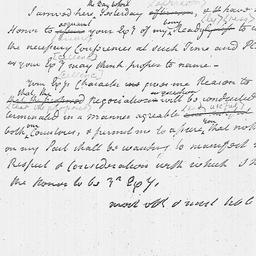 the Day before
I arrived here Yesterday & have
acquaint
Honor to your Exy of my Readyness to
the necessary Conferences at such Time and Pl
as your Exy may think proper to name.
Your Exys Character gives me Reason to
that the Negociation will be conducted
terminated in a manner agreable
both Countries, & permit me to assure, that noth
on my Part shall be wanting to manifest
Respect & Consideration with which I h
the Honor to be Yr Exy.
most obt & most hbl